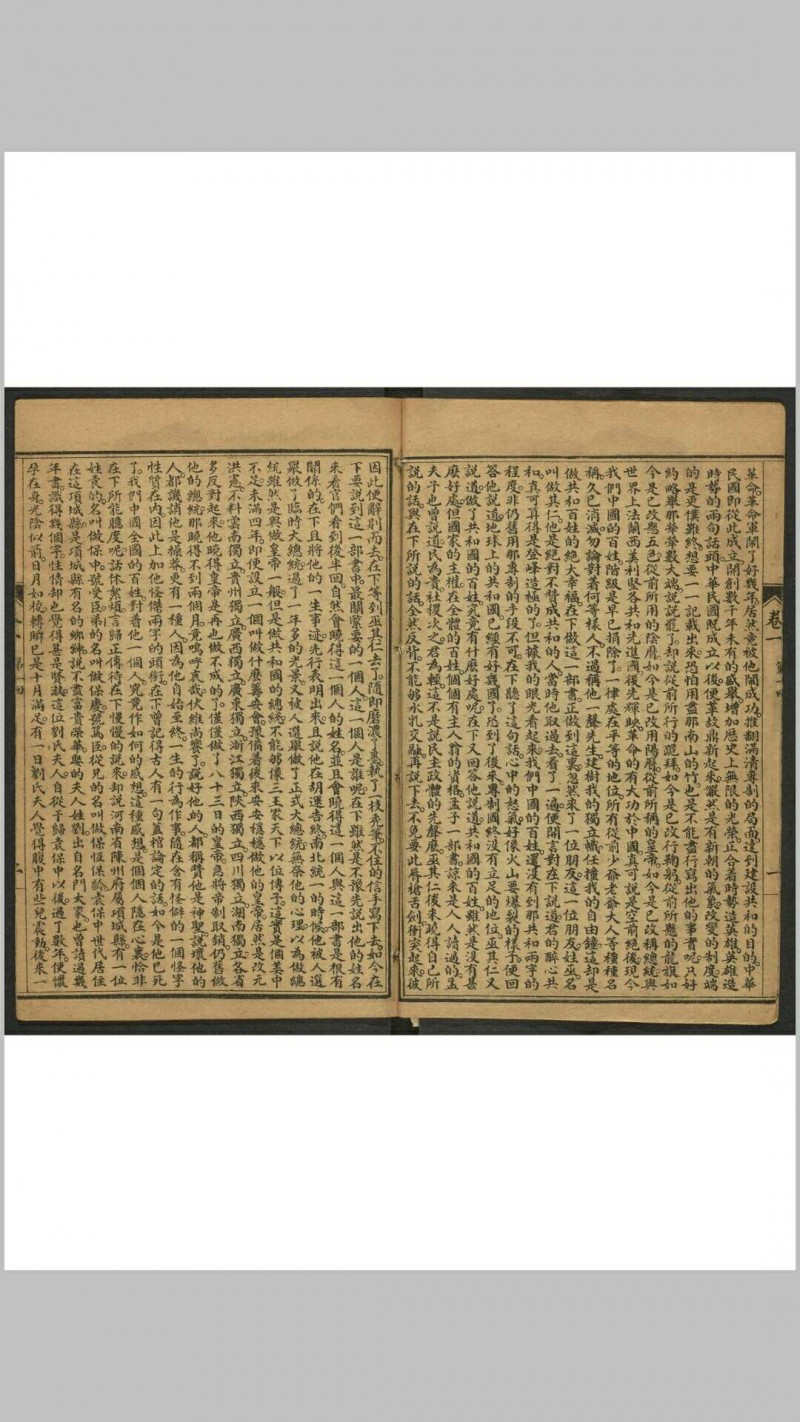 革命革命軍鬧了好幾年居然竟被他鬧成功推翻滿清專制的局面達到建設共和的目的中華
民國即從此成立開創數千年未有的盛舉增加歷史上無限的光榮正合着時勢造英雄英雄造
時勢的兩句話頭中華民國既成立以後便革故鼎新起來儼然是有新朝的氣象改變的制度端
的是更僕難終想要一一記載出來恐怕用盡那南山的竹也是不能盡行寫出他的事實呢只好
約略舉那犖犖數大端說說罷了却說從前所行的跪拜如今是已改行鞠躬從前所懸的龍旗如
今是已改懸五色從前所用的陰曆如今是已改用陽曆從前所稱的皇帝如今是已改稱總統與
世界上法蘭西美利堅各共和先進國後先輝映革命的有大功於中國真可說是空前絕後現今
我們中國的百姓階級是早已捐除了一律處在平等的地位所有從前少爺老爺大人等種種名
稱久已消滅勿論對着何等樣人不過稱他一聲先生建樹我的獨立幟任撞我的自由鐘這却是
做共和百姓的絕大幸福在下做這一部書正做到這裏忽然來了一位朋友這一位朋友姓巫名
叫做其仁他是絕對不贊成共和的人當時他取過去看了一遍便開言對在下說道君的醉心共
和真可算得是登峰造極的了但據我的眼光看起來我們中國的百姓還沒有到那共和兩字的
程度非仍舊用那專制的手段不可在下聽了這句話心中的怒氣好像火山要爆裂的樣子便回
答他說道地球上的共和國已經有好幾國了恐到了後來專制國終沒有立足的地位巫其仁又
說道做了共和國的百姓究竟有什麼好處呢在下又回答他說道共和國的百姓雖然是沒有甚
麼好處但國家的主權在全體的百姓個個有主人翁的資格孟子一部書諒來是人人讀過的孟
夫子也曾說道民為貴社稷次之君為輕這不是說民主政體的先聲麼巫其仁後來曉得自己所
說的話與在下所說的話全然反背不能夠水乳交融再說下去不免要此唇槍舌劍衝突起來彼
因此便辭別而去在下等到巫其仁去了隨即磨濃了墨執了一枝禿筆不住的信手寫下去如今在
下要說到這一部書中最關緊要的一個人這一個人是誰呢在下雖然是不豫先說出他的姓名
來看官們看到後半回自然會曉得這一個人的姓名並且會曉得這一個人與這一部書是很有
關係的在下且將他的一生事迹先行表明出來且說他在胡運告終南北統一的時候他被人選
舉做了臨時大總統過了一年多的光景又被人選舉做了正式大總統無奈他的心理以為做總
統雖然是與做皇帝一般但是做共和國的總統不能夠像三王家天下以位傳子這實是個美中
不足未滿四年即便設立一個叫做什麼籌安會豫備着後來安安穩穩做他的皇帝居然是改元
洪憲不料雲南獨立貴州獨立廣西獨立廣東獨立浙江獨立陝西獨立四川獨立湖南獨立各省
多反對起來他曉得皇帝是再也做不成的了僅僅做了八十三日的皇帝急將帝制取銷仍舊做
他的總統那曉得不到兩個月竟嗚呼哀哉伏維尚饗了說好他的人都稱贊他是神聖說壞他的
人都譏誚他是操莽更有一種人因為他自始至終一生的行為作事隨在含有怪僻的一個怪字
性質在內因此上加他怪傑兩字的頭銜在下曾記得古人有一句蓋棺論定的話如今是他已死
了我們中國全國的百姓對着他一個人究竟作如何的感想這種感想是個個人隱在心裏恰非
在下所能臆度呢話休絮煩言歸正傳待在下慢慢的說來却說河南省陳州府屬項城縣有一位
姓袁的名叫做保中號受臣弟的名叫做保慶號篤臣從兄的名叫做保恆保齡袁保中世代居住
在這項城縣是項城縣有名的鄉紳說不盡富貴榮華娶的夫人姓劉出自名門大家也曾讀過幾
年書識得幾個字性情却也覺得甚是賢淑這位劉氏夫人自從于歸袁保中以後過了數年便懷
孕在身光陰似箭日月如梭轉瞬已是十月滿足有一日劉氏夫人覺得腹中有些兒震動後來一
卷一
一